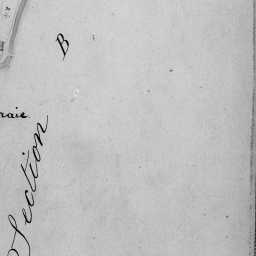 B
raie
Section